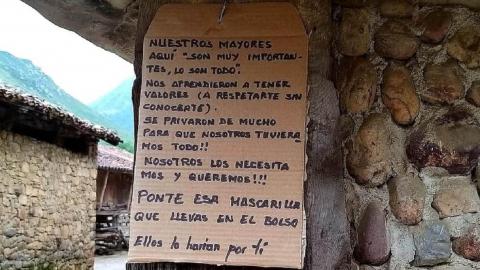 NUESTROS MAYORES
AQUI "SON MUY IMPORTAN-
TES, LO SON TODO".
NOS APRENDIERON A TENER
VALORES (A RESPETARTE SIN
CONOCERTE).
SE PRIVARON DE MUCHO
PARA QUE NOSOTROS TUVIERA
MOS TODO!!
NOSOTROS LOS NECESITA
MOS Y QUEREMOS!!!
PONTE ESA MASCARILLA
QUE LLEVAS EN EL BOLSO
Ellos lo harian por ti